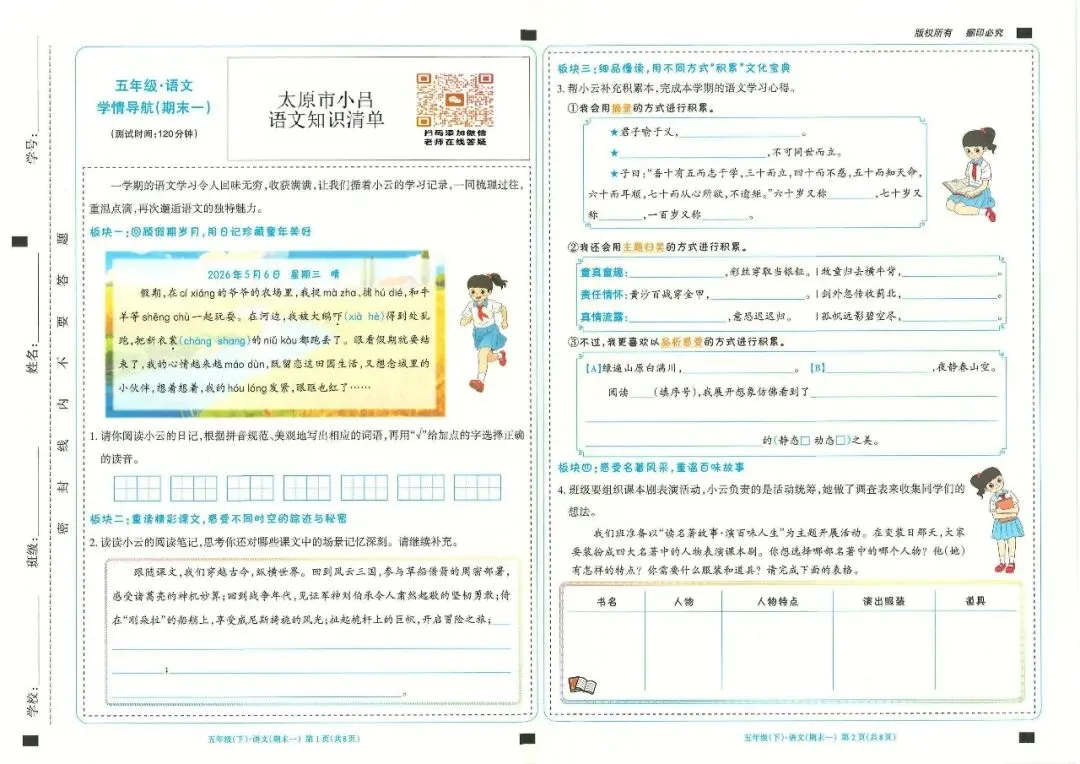 版权所有 翻印必究
五年级·语文
学情导航(期末一)
(测试时间:120分钟)
太原市小吕
语文知识清单
扫码添加微信
老师在线答疑
学号:
姓名:
班级:
学校:
密 封 线 内 不 要 答 题
一学期的语文学习令人回味无穷,收获满满,让我们循着小云的学习记录,一同梳理过往,
重温点滴,再次邂逅语文的独特魅力。
板块一:回顾假期岁月,用日记珍藏童年美好
2026年5月6日 星期三 晴
假期,在cí xiáng的爷爷的农场里,我捉mà zha、捕hú dié,和牛
羊等shēng chù一起玩耍。在河边,我被大鹅吓(xià hè)得到处乱
跑,把新衣裳(cháng shang)的niǔ kòu都跑丢了。眼看假期就要结
束了,我的心情越来越máo dùn,既留恋这田园生活,又想念城里的
小伙伴,想着想着,我的hóu lóng发紧,眼眶也红了……
1. 请你阅读小云的日记,根据拼音规范、美观地写出相应的词语,再用“√”给加点的字选择正确
的读音。
板块二:重读精彩课文,感受不同时空的踪迹与秘密
2. 读读小云的阅读笔记,思考你还对哪些课文中的场景记忆深刻。请继续补充。
跟随课文,我们穿越古今,纵横世界。回到风云三国,参与草船借箭的周密部署,
感受诸葛亮的神机妙算;回到战争年代,见证军神刘伯承令人肃然起敬的坚韧勇敢;倚
在“刚朵拉”的船艄上,享受威尼斯旖旎的风光;扯起桅杆上的巨帆,开启冒险之旅;
;
。
五年级(下)·语文(期末一) 第1页(共8页)
板块三:细品慢读,用不同方式“积累”文化宝典
3. 帮小云补充积累本,完成本学期的语文学习心得。
①我会用摘录的方式进行积累。
★君子喻于义,________。
★________,不可同世而立。
★子曰:“吾十有五而志于学,三十而立,四十而不惑,五十而知天命,
六十而耳顺,七十而从心所欲,不逾矩。”六十岁又称________,七十岁又
称________,一百岁又称________。
②我还会用主题归类的方式进行积累。
童真童趣:________,彩丝穿取当银钲。|牧童归去横牛背,________。
责任情怀:黄沙百战穿金甲,________。|剑外忽传收蓟北,________。
真情流露:________,意恐迟迟归。|孤帆远影碧空尽,________。
③不过,我更喜欢以品析感受的方式进行积累。
【A】绿遍山原白满川,________。【B】________,夜静春山空。
阅读____(填序号),我展开想象仿佛看到了________
________的(静态□ 动态□)之美。
板块四:感受名著风采,重温百味故事
4. 班级要组织课本剧表演活动,小云负责的是活动统筹,她做了调查表来收集同学们的
想法。
我们班准备以“读名著故事·演百味人生”为主题开展活动。在变装日那天,大家
要装扮成四大名著中的人物表演课本剧。你想选择哪部名著中的哪个人物?他(她)
有怎样的特点?你需要什么服装和道具?请完成下面的表格。
书名 人物 人物特点 演出服装 道具
五年级(下)·语文(期末一) 第2页(共8页)